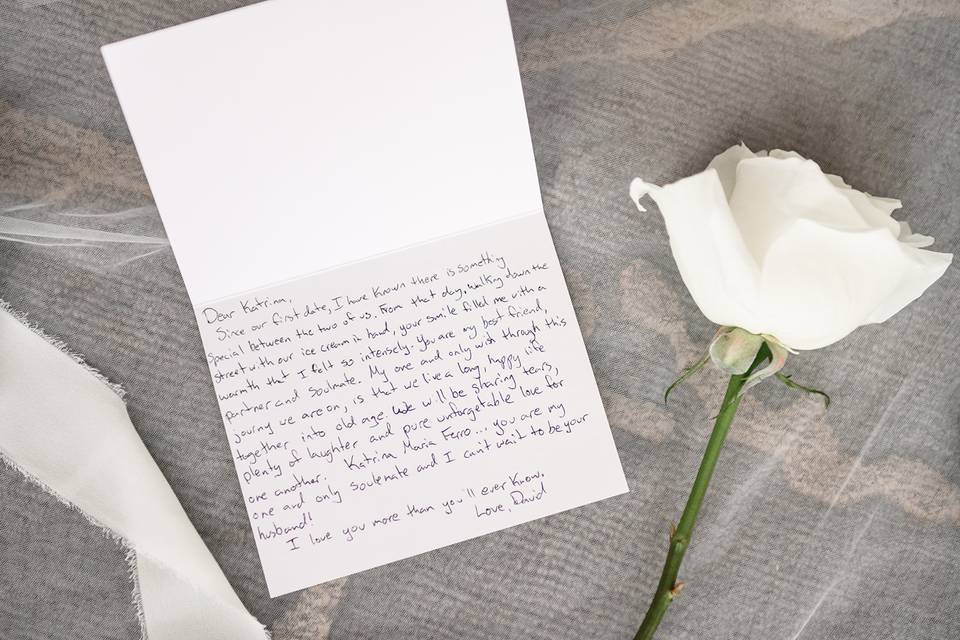 Dear Katrina,
Since our first date, I have known there is something
special between the two of us. From that day, walking down the
street with our ice cream in hand, your smile filled me with a
warmth that I felt so intensely. You are my best friend,
partner and soulmate. My one and only wish through this
journy we are on, is that we live a long, happy life
together into old age. We will be sharing tears,
plenty of laughter and pure unforgetable love for
one another. Katrina Maria Ferro... you are my
one and only soulemate and I can't wait to be your
husband!
I love you more than you'll ever know.
Love, David